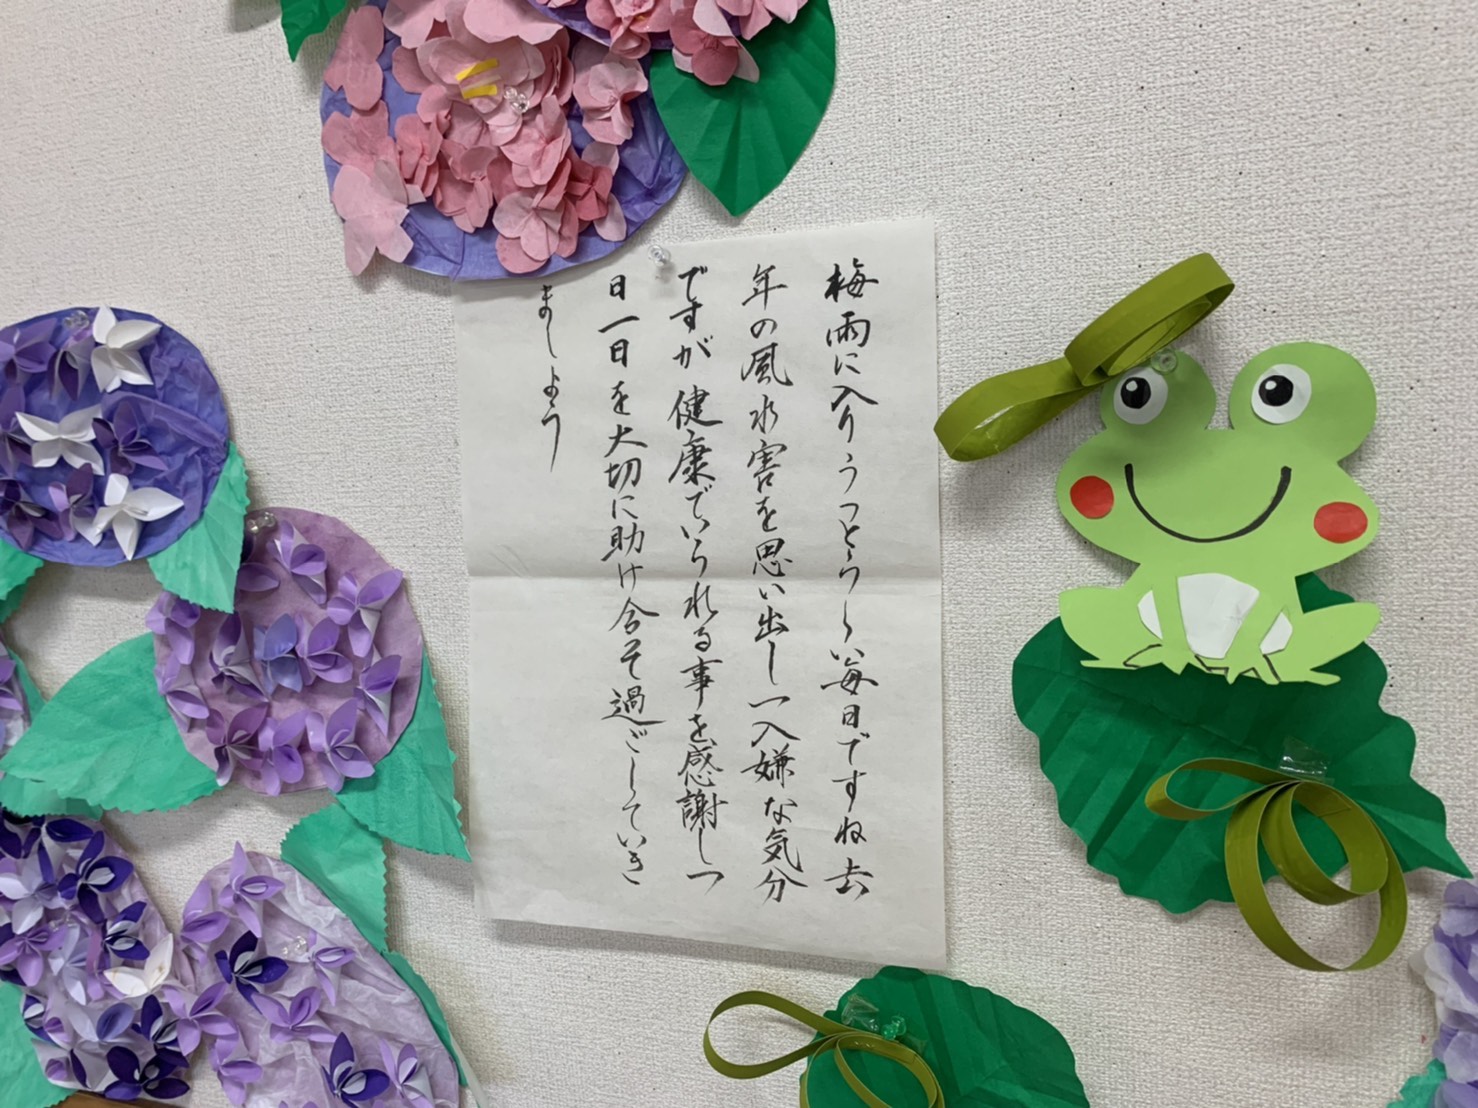 梅雨に入りうっとうしい毎日ですね去
年の風水害を思い出し一入嫌な気分
ですが健康でいられる事を感謝しつ
日一日を大切に助け合って過ごしていき
ましょう